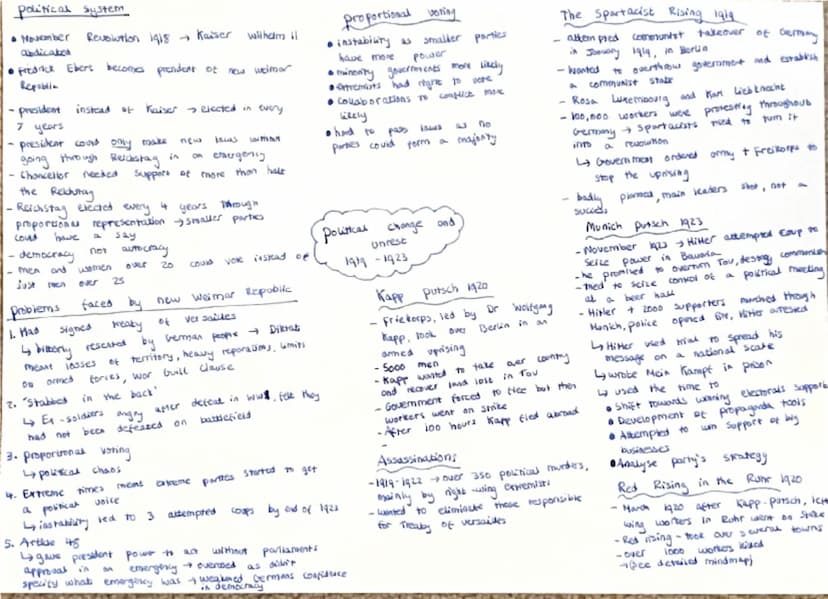 Political system
• November Revolution 1918 → Kaiser Wilhelm II
abdicated
• Fredrick Ebert becomes president of new Weimar
Republic
- president instead of Kaiser → elected in every
7 years
- president could only make new laws without
going through Reichstag in an emergency
- Chancellor needed support of more than half
the Reichstag
- Reichstag elected every 4 years through
proportional representation → smaller parties
could have a say
- democracy not autocracy
- men and women over 20 could vote instead of
just men over 25
Problems faced by new Weimar Republic
1. Had signed treaty of Versailles
↳ bitterly resented by German people → Diktat
meant losses of territory, heavy reparations, limits
on armed forces, War Guilt Clause
2. "Stabbed in the back"
↳ Ex-soldiers angry after defeat in WW1, felt they
had not been defeated on battlefield
3. Proportional voting
↳ political chaos
4. Extreme times meant extreme parties started to get
a political voice
↳ instability led to 3 attempted coups by end of 1923
5. Article 48
↳ gave president power to act without parliaments
approval in an emergency → overused as didn't
specify what emergency was → weakened Germans confidence
in democracy
proportional voting
• instability as smaller parties
have more power
• minority governments more likely
• extremists had right to vote
• collaborations to conflict more
likely
• hard to pass laws as no
parties could form a majority
Political change and
unrest
1919 - 1923
Kapp putsch 1920
- Friekorps, led by Dr Wolfgang
Kapp, took over Berlin in an
armed uprising
- 5000 men
- Kapp wanted to take over country
and recover land lost in ToV
- Government forced to flee but then
workers went on strike
- After 100 hours Kapp fled abroad
-
Assassinations
- 1919-1922 → over 350 political murders,
mainly by right-wing extremists
- wanted to eliminate those responsible
for Treaty of Versailles
The Spartacist Rising 1919
- attempted communist takeover of Germany
in January 1919, in Berlin
- Wanted to overthrow government and establish
a communist state
- Rosa Luxembourg and Karl Liebknecht
- 100,000 workers were protesting throughout
Germany → Spartacists tried to turn it
into a revolution
↳ Government ordered army + Freikorps to
stop the uprising
- badly planned, main leaders shot, not a
success
Munich putsch 1923
- November 1923 → Hitler attempted coup to
seize power in Bavaria
- he promised to overturn ToV, destroy communism
- tried to seize control of a political meeting
at a beer hall
- Hitler + 2000 supporters marched though
Munich, police opened fire, Hitler arrested
↳ Hitler used trial to spread his
message on a national scale
↳ wrote Mein Kampf in prison
↳ used the time to
• Shift towards winning electorals support
• Development of propaganda tools
• Attempted to win support of big
businesses
• Analyse party's strategy
Red Rising in the Ruhr 1920
- March 1920 after Kapp-putsch, left
wing workers in Ruhr went on strike
- Red rising - took over several towns
- over 1000 workers killed
→ (see detailed mindmap)